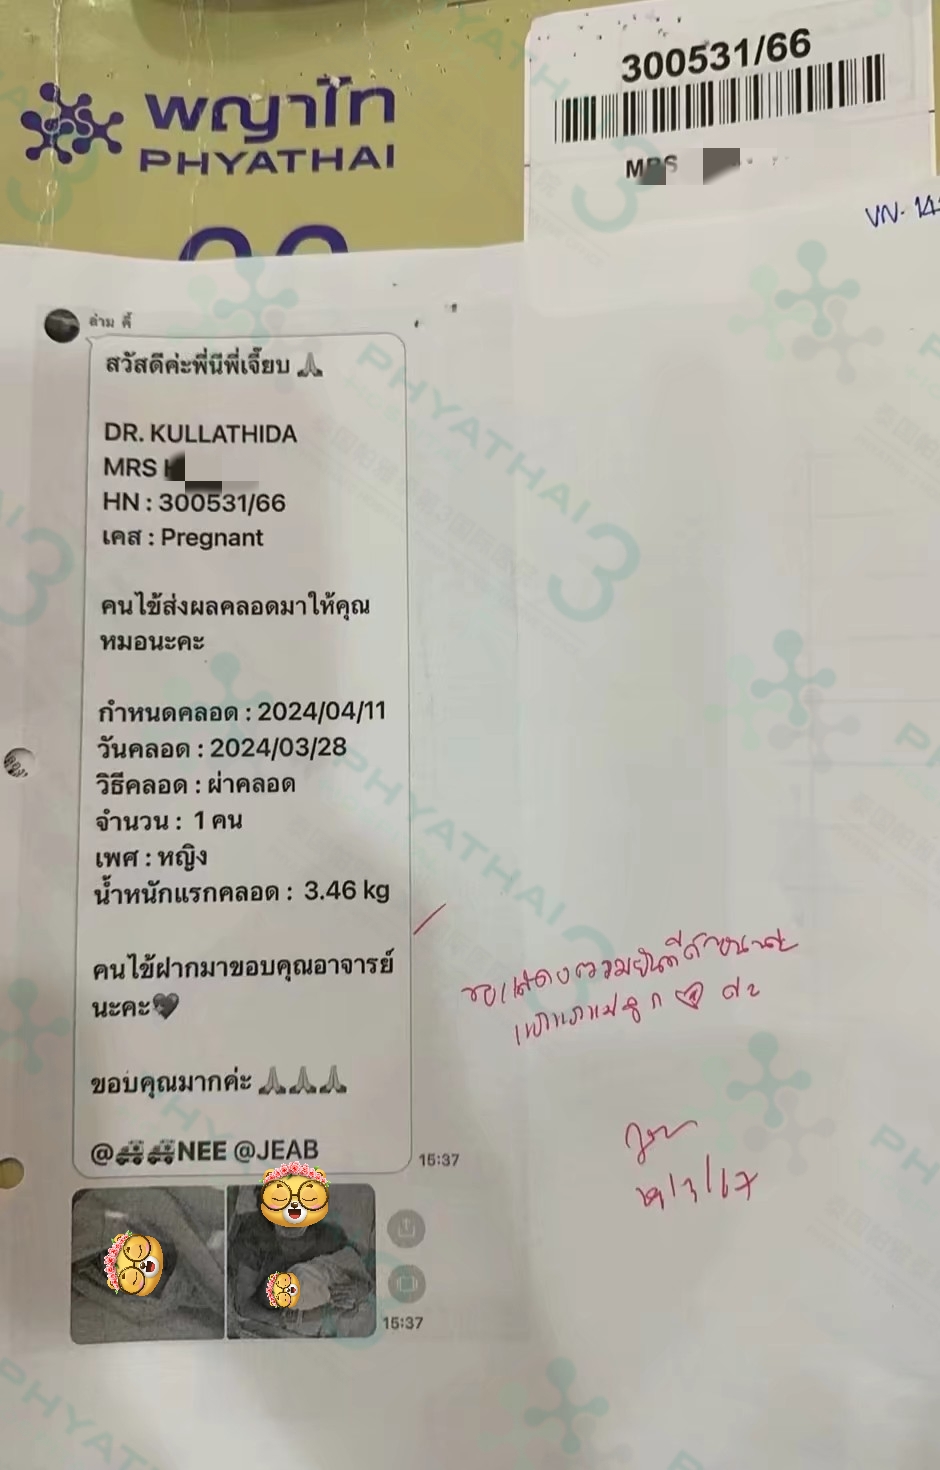 พญาไท
PHYATHAI
300531/66
MRS
VN. 14
ล่าม ตี้
สวัสดีค่ะพี่นีพี่เจี๊ยบ 🙏
DR. KULLATHIDA
MRS
HN : 300531/66
เคส : Pregnant
คนไข้ส่งผลคลอดมาให้คุณ
หมอนะคะ
กำหนดคลอด : 2024/04/11
วันคลอด : 2024/03/28
วิธีคลอด : ผ่าคลอด
จำนวน : 1 คน
เพศ : หญิง
น้ำหนักแรกคลอด : 3.46 kg
คนไข้ฝากมาขอบคุณอาจารย์
นะคะ🖤
ขอบคุณมากค่ะ 🙏🙏🙏
@🚑🚑NEE @JEAB
15:37
15:37
ขอแสดงความยินดีด้วยนะคะ
PHYATHAI 3